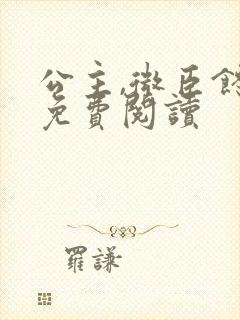 公主,微臣
免費閱讀
羅謙